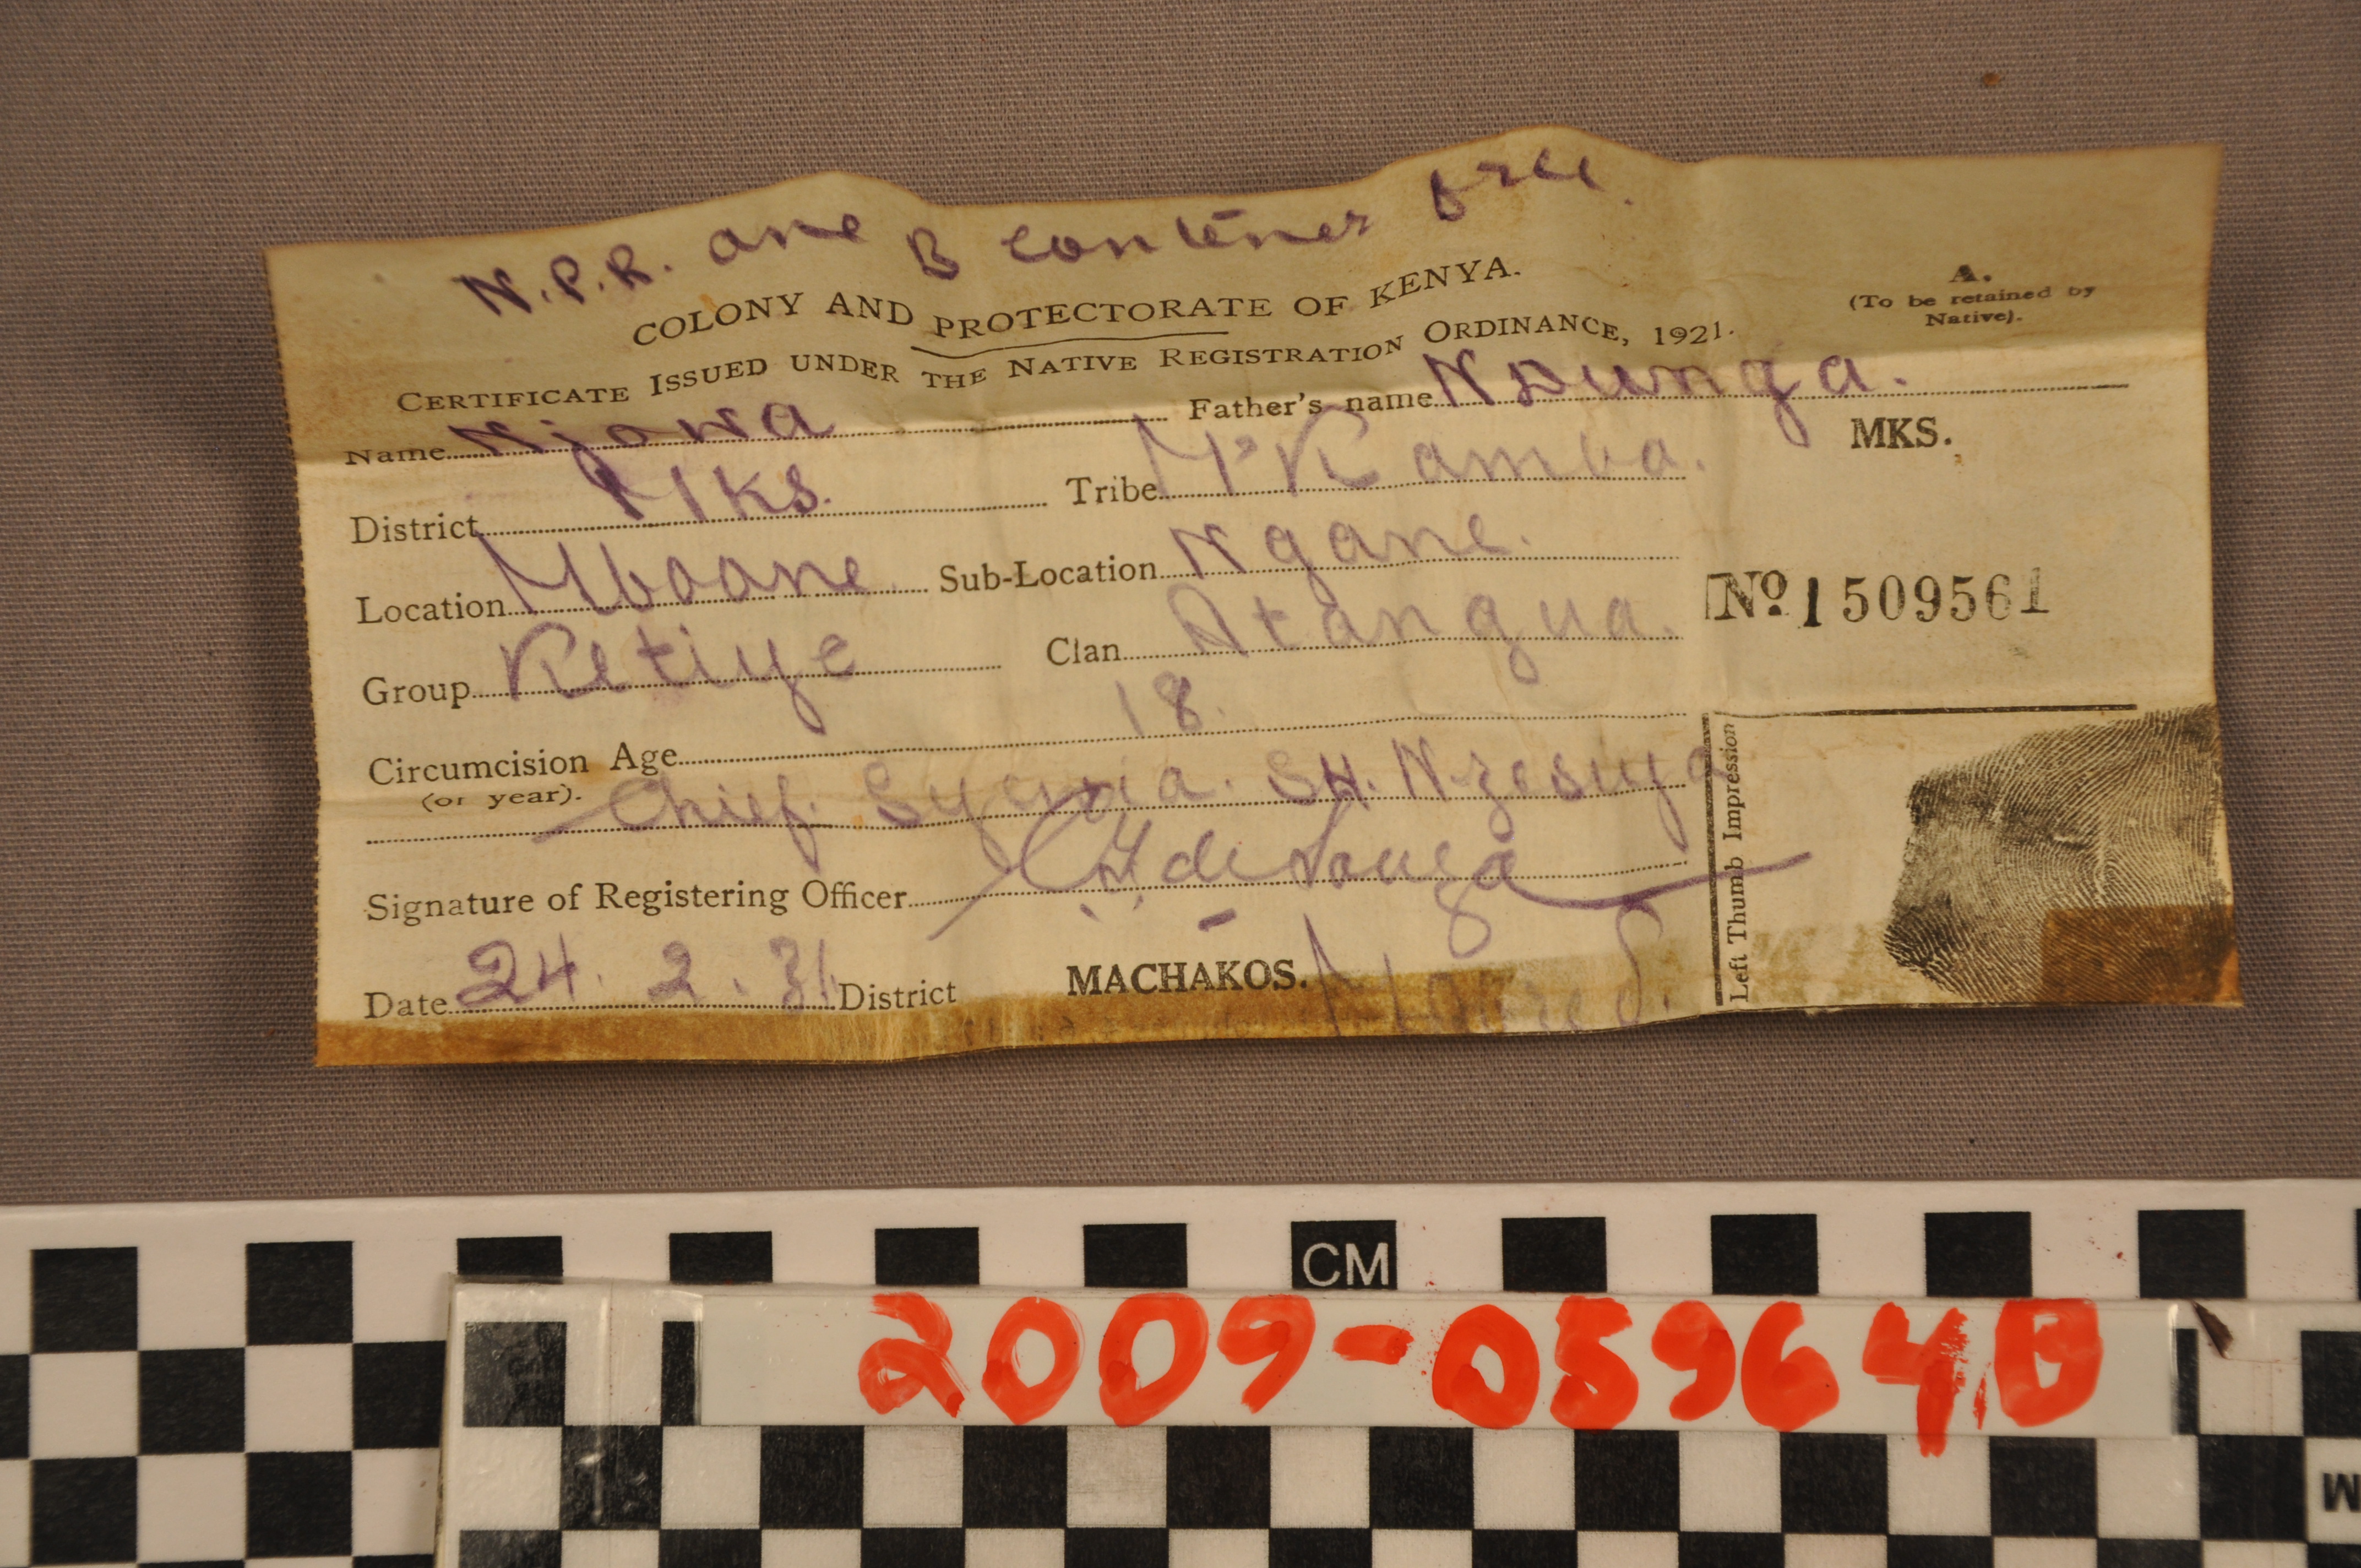 N.P.R. one B contener free.
COLONY AND PROTECTORATE OF KENYA.
A.
(To be retained by
Native).
CERTIFICATE ISSUED UNDER THE NATIVE REGISTRATION ORDINANCE, 1921.
Name Njowa Father's name Nsunga.
MKS.
District Mks. Tribe M'Kamba.
Location Mbooni Sub-Location Ngane.
No 1509561
Group Ketiye Clan Atangua.
Circumcision Age 18.
(or year).
Chief. SH. Nzesiya
Signature of Registering Officer de Souza
Date 24. 2. 31 District MACHAKOS.
Left Thumb Impression
CM
2009-05964B